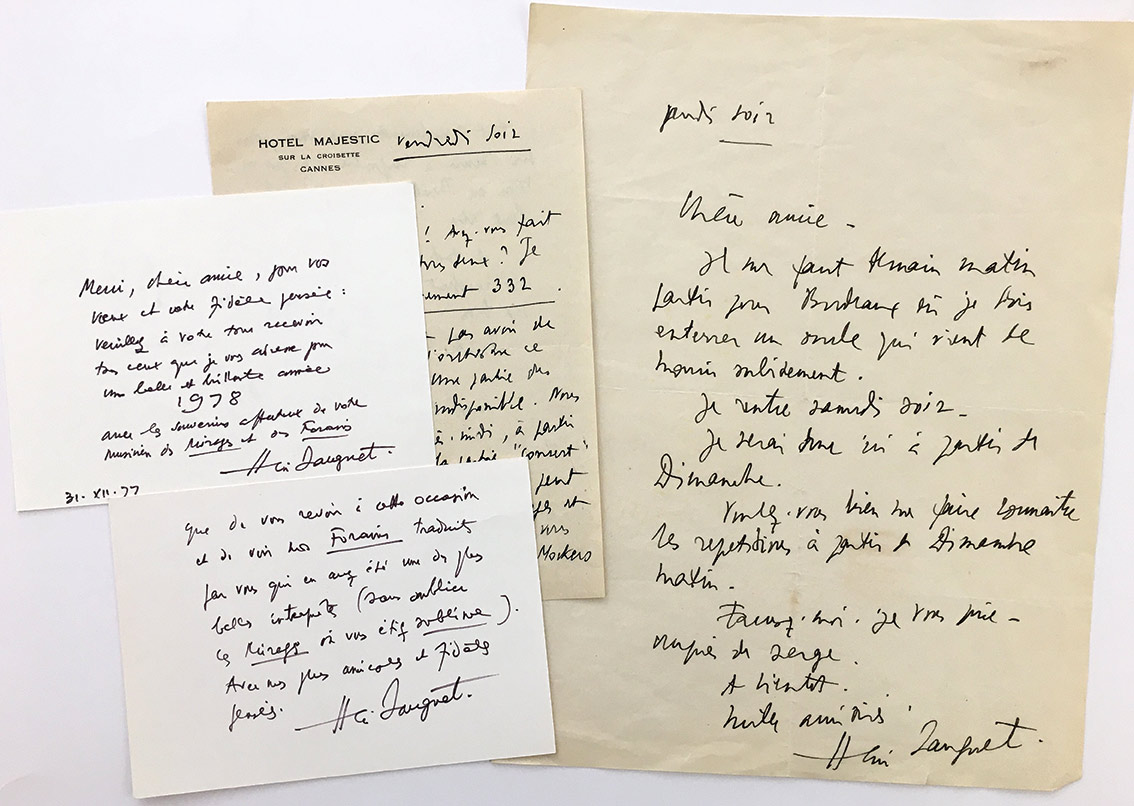 HOTEL MAJESTIC
SUR LA CROISETTE
CANNES
vendredi soir
! Avez-vous fait
tous deux ? Je
332
pas avoir de
l'orchestre ce
une partie des
indisponible. Nous
à partir
la partie "concert"
peut
et
vous
Markova
jeudi soir
Chère amie -
Il me faut demain matin
partir pour Bordeaux où je dois
enterrer un oncle qui vient de
mourir subitement.
Je rentre samedi soir -
Je serai donc ici à partir de
Dimanche.
Voulez-vous bien me faire connaître
les répétitions à partir de Dimanche
matin.
Excusez-moi. je vous prie -
auprès de Serge.
A bientôt.
Henri Sauguet.
Merci, chère amie, pour vos
vœux et votre fidèle pensée :
veuillez à votre tour recevoir
tous ceux que je vous adresse pour
une belle et brillante année
1978
avec les souvenirs affectueux de votre
musicien des Mirages et des Forains
Henri Sauguet.
31-XII-77
que de vous revoir à cette occasion
et de voir nos Forains traduits
par vous qui en avez été une des plus
belles interprètes (sans oublier
les Mirages où vous étiez sublime).
Avec mes plus amicales et fidèles
pensées.
Henri Sauguet.